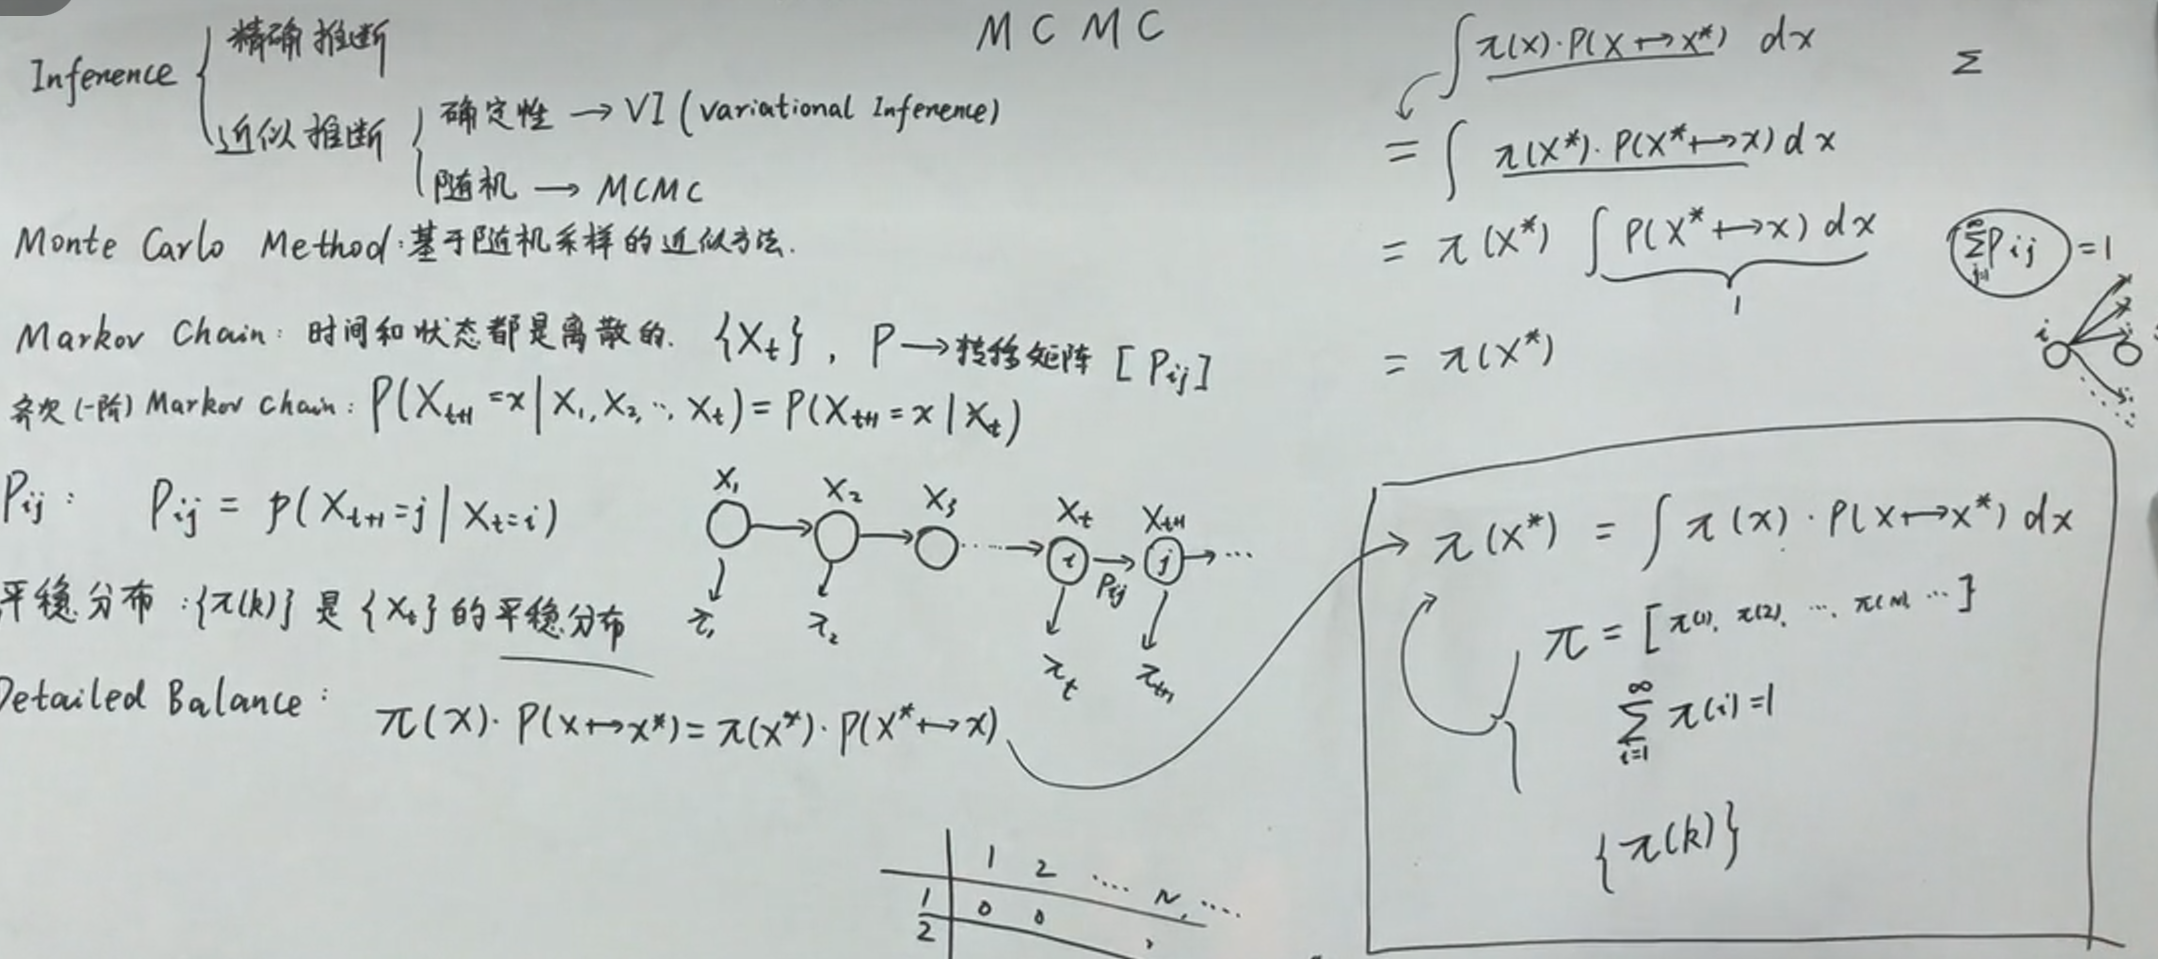 MCMC
Inference
精确推断
近似推断
确定性 → VI (variational Inference)
随机 → MCMC
Monte Carlo Method: 基于随机采样的近似方法.
Markov Chain: 时间和状态都是离散的. {X_t}, P → 转移矩阵 [P_ij]
齐次(一阶) Markov Chain: P(X_{t+1}=x | X_1, X_2, ..., X_t) = P(X_{t+1}=x | X_t)
P_ij: P_ij = p(X_{t+1}=j | X_t=i)
X_1 → X_2 → X_3 ...... → X_t → X_{t+1} → ...
i P_ij j
π_1 π_2 π_t π_{t+1}
平稳分布: {π(k)} 是 {X_t} 的平稳分布
Detailed Balance: π(x)·P(x↦x*) = π(x*)·P(x*↦x)
1 2 .... N, ....
1 0 0
2
∫ π(x)·P(x↦x*) dx
Σ
= ∫ π(x*)·P(x*↦x) dx
= π(x*) ∫ P(x*↦x) dx
1
= π(x*)
Σ_{j=1}^{∞} P_ij = 1
i
π(x*) = ∫ π(x)·P(x↦x*) dx
π = [π(1), π(2), ..., π(N), ...]
Σ_{i=1}^{∞} π(i) = 1
{π(k)}